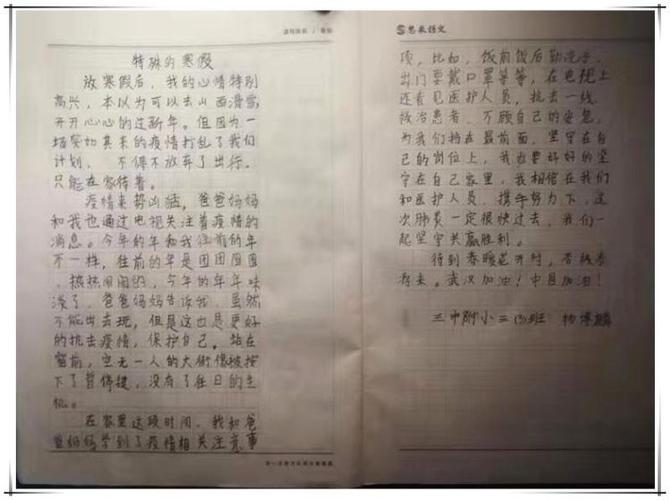 特殊的寒假
放寒假后，我的心情特别
高兴，本以为可以去山西滑雪，
开开心心的过新年。但因为一
场突如其来的疫情打乱了我们
计划，不得不放弃了出行，
只能在家待着。
疫情来势凶猛，爸爸妈妈
和我也通过电视关注着疫情的
消息。今年的年和我往前的年
不一样，往前的年是团团圆圆
，热热闹闹的，今年的年年味
淡了，爸爸妈妈告诉我，虽然
不能出去玩，但是这也是更好
的抗击疫情，保护自己。站在
窗前，空无一人的大街像被按
下了暂停键，没有了往日的生
机。
在家里这段时间，我和爸
爸妈妈学到了疫情相关注意事
思泉语文
项，比如，饭前饭后勤洗手，
出门要戴口罩等等，在电视上
还看见医护人员，抗击一线，
救治患者，不顾自己的安危，
为我们挡在最前面，坚守在自
己的岗位上，我也要好好的坚
守在自己家里，我相信在我们
和医护人员，携手努力下，这
次肺炎一定很快过去，我们一
起坚守共赢胜利。
待到春暖花开时，否极泰
再来。武汉加油！中国加油！
三中附小三(3)班 杨博麟